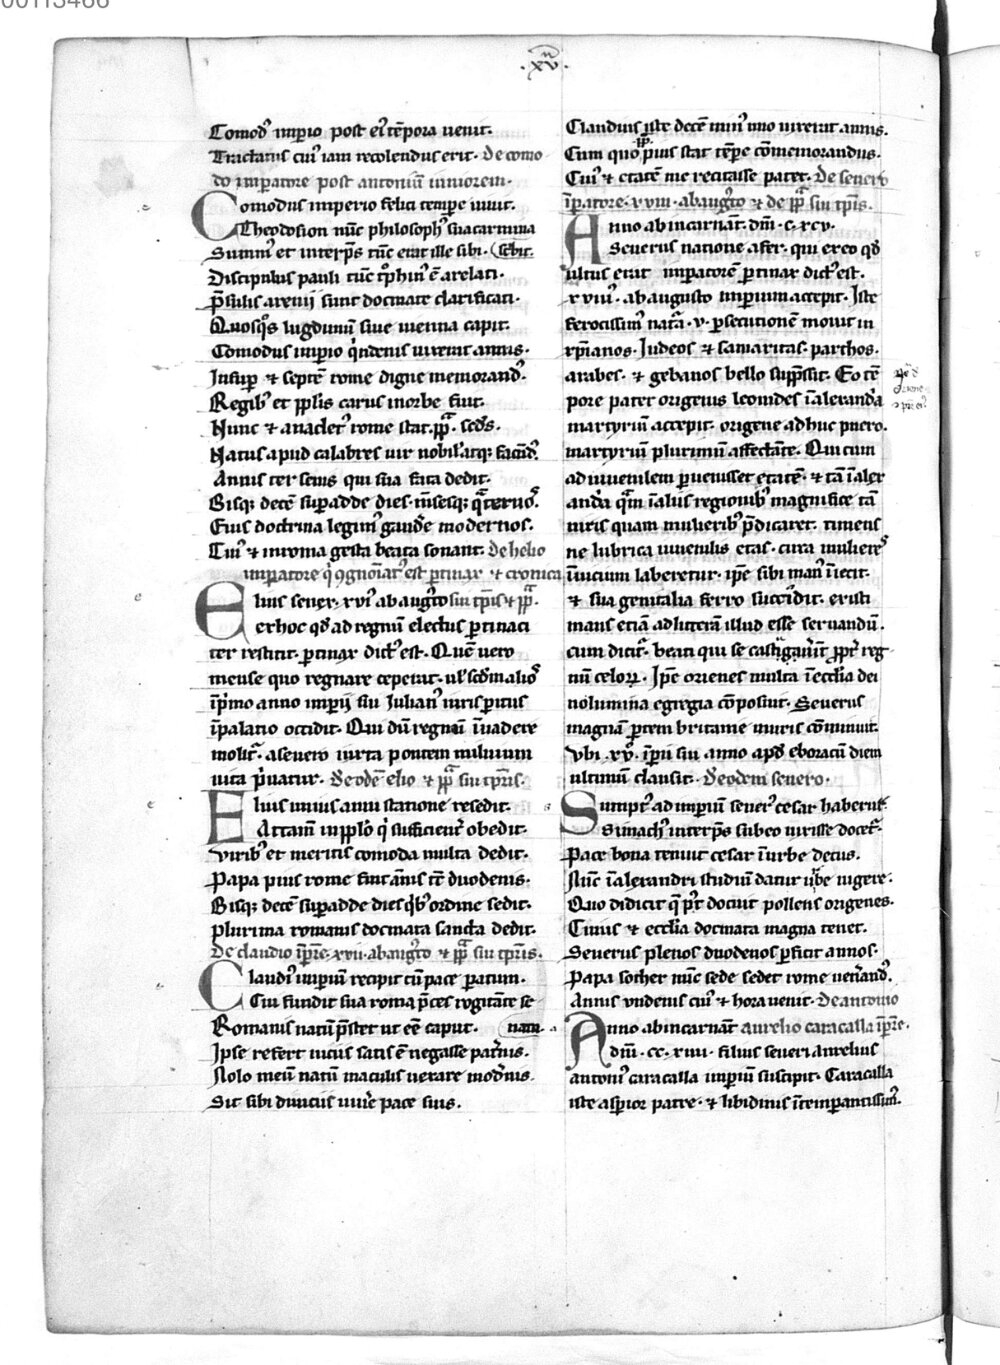 00113466
.xv.
Comod᷒ impio post ei᷒ tēpora venit.
Tractatus cui᷒ iam recolendus erit. De como
do imperatore post antoniū iuniorem.
Comodus imperio felici tempe iuuit.
Theodosion nūc philosoph᷒ sua carmina
Summ᷒ et interp̄s tūc erat ille sibi. scͥbit.
Discipulus pauli tūc tͦphim᷒ ē arelati.
P̄sulis arenii sunt docmate clarificati.
Quosq̄ lugdunū siue vienna capit.
Comodus impio q̇ndenis vixerat annis.
Insup᷒ et septē rome digne memorand᷒.
Regib᷒ et pplis carus in orbe fuit.
Nunc et anaclet᷒ rome stat .pp̄. scds.
Natus apud calabres vir nobil᷒ atq; facūd᷒.
Annis ter senis qui sua fata dedit.
Bisq; decē supadde dies. mēseq; q̄teruos.
Eius doctrina legim᷒ gaudē modernos.
Cui᷒ et in roma gesta beata sonant. De helio
imperatore q̇ ꝯgnoīat᷒ est ptinax et cronica
Elius sener. xvi᷒ ab augͦto sui tp̄is et pp̄.
ex hoc qd ad regnū electus ptinaci
ter restitit. ptinax dict᷒ est. Quē vero
mense quo regnare ceperat. ul᷒ scdm alios
ip̄mo anno imperii sui Julian᷒ iurispitus
ī palatio occidit. Qui dū regnū īuadere
molit᷒. a seuero iuxta pontem miluium
uita p̄uatur. De eodē elio et pp̄ sui tp̄ris.
Elius unius anni statione resedit.
Attam̄ in pplo q̇ sufficient᷒ obedit.
Virib᷒ et meritis comoda multa dedit.
Papa pius rome fuit ānis tē duodenis.
Bisq; decē supadde dies qb᷒ ordine sedit.
Plurima romanis docmata sancta dedit.
De claudio ip̄re. xvii. ab augͦto et pp̄ sui tp̄ris.
Claudi᷒ impiū recipit cū pace paratum.
Cui fundit sua roma p̄ces rogitāte se
Romanis natū p̄stet ut eē caput. natu.
Ipse refert inicus satis ē negasse patnis.
Nolo meū natū maculis uexare modnis.
Sit sibi diuicius viuē pace suis.
Claudius iste decē min᷒ uno vixerat annis.
Cum quo pp̄ pius stat tēpe cōmemorandus.
Cui᷒ et etatē me recitasse patet. De seuero
īperatore. xviii. ab augͦto et de pp̄ sui tp̄is.
Anno ab incarnat̄. dn̄i. c. xcv.
Seuerus natione afer. qui ex eo qd
ultus erat imperatorē ptinax dict᷒ est.
xviii᷒. ab augusto imperium accepit. Iste
ferocissim᷒ natͣa. v. psecutionē mouit in
xp̄ianos. Judeos et samaritas. parthos.
arabes. et gebanos bello supp̄ssit. Eo tē
pore pater origenis leonides ī alexandͣa
martyriū accepit. origene adhuc puero.
martyriū plurimū affectāte. Qui cum
ad iuuenilem peruenisset etatē. et tā ī alex
andͣa q̄m ī aliis regionib᷒ magnifice tā
uiris quam mulierib᷒ p̄dicaret. timens
ne lubrica iuuenilis etas. cura muliere᷒
iuncium laberetur. ip̄e sibi man᷒ iniecit.
et sua genitalia ferro succidit. existi
mans etiā ad literā illud esse seruandū.
cum dicit᷒. beati qui se castigauerīt ppt᷒ reg
nū celoꝝ. Ip̄e orienes multa ī ecclīa dei
uolumina egregia cōposuit. Seuerus
magnā ptem britanie muris cōmuniit.
Vbi .xv. īperii sui anno apd eboracū diem
ultimū clausit. De eodem seuero.
Sumpt᷒ ad impiū seuer᷒ cesar haberis.
Simach᷒ interp̄s sub eo uixisse docet᷒.
Pace bona tenuit cesar ī urbe decus.
Nūc ī alexandri studiū datur ube uigere.
Quo didicit q̄ p᷒t docuit pollens origenes.
Cuius et ecclīa docmata magna tenet.
Seuerus plenos duodenos pficit annos.
Papa sother nūc sede sedet rome uen̄and᷒.
Annis vndenis cui᷒ et hora venit. De antonio
Anno ab incarnat̄ aurelio caracalla īpre.
dn̄i. cc. xiiii. filius seueri aurelius
antoni᷒ caracalla impiū suscipit. Caracalla
iste aspior patre. et libidinis ītemperantissim᷒.